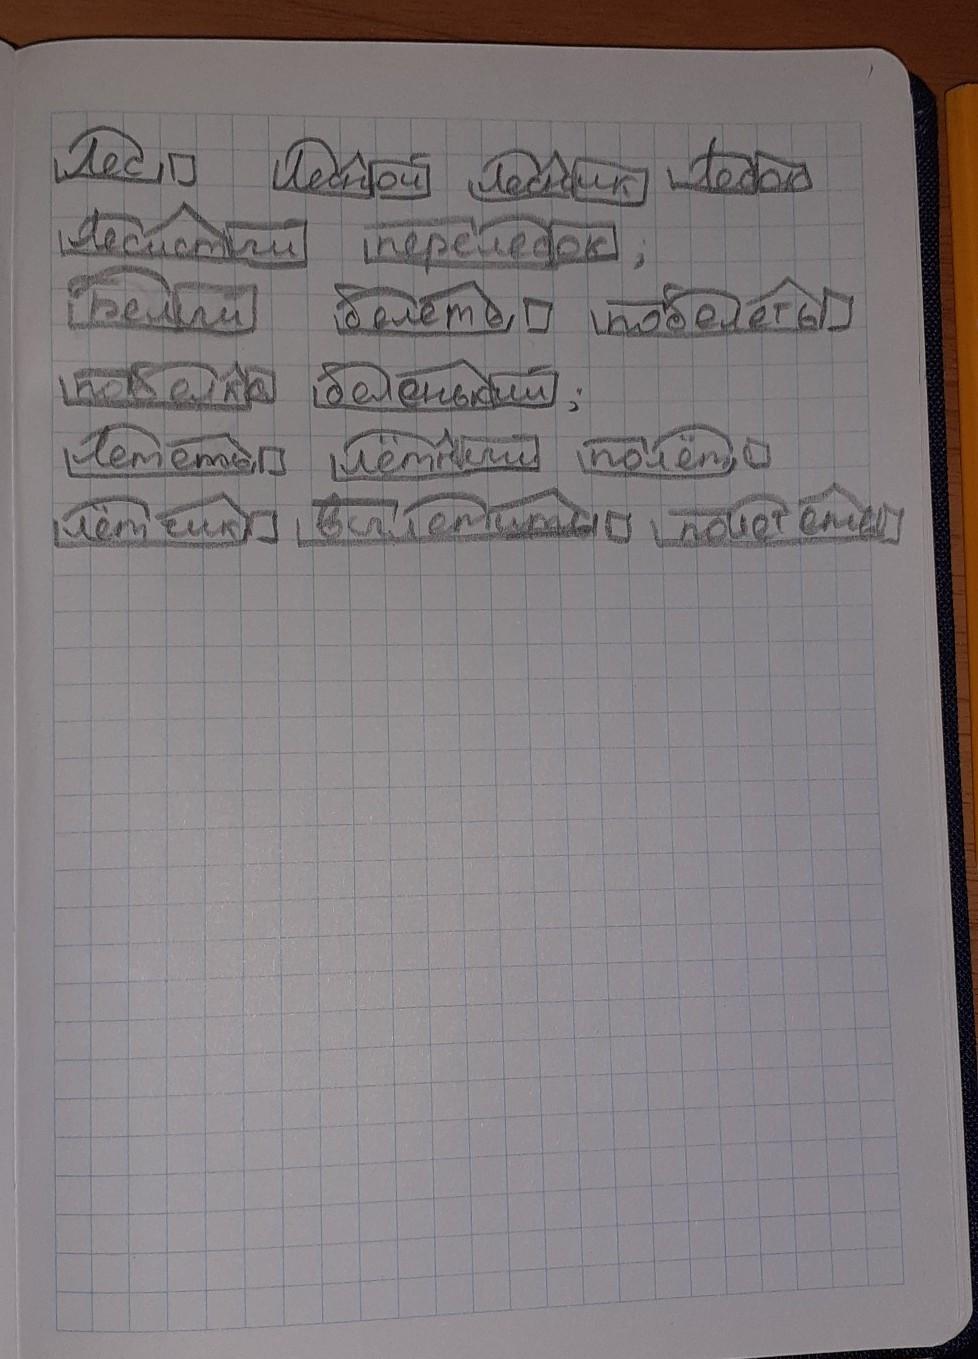 Лес, Лесной Лесник Лесок
Лесистый перелесок;
Белый белеть, побелеть
побелка беленький;
Лететь, лётный полёт,
лётчик полететь